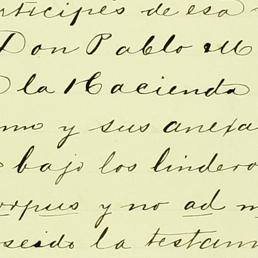 rticipes de esa
Don Pablo M
la Hacienda
y sus anexa
bajo los lindero
orpus y no ad m
oseido la testam